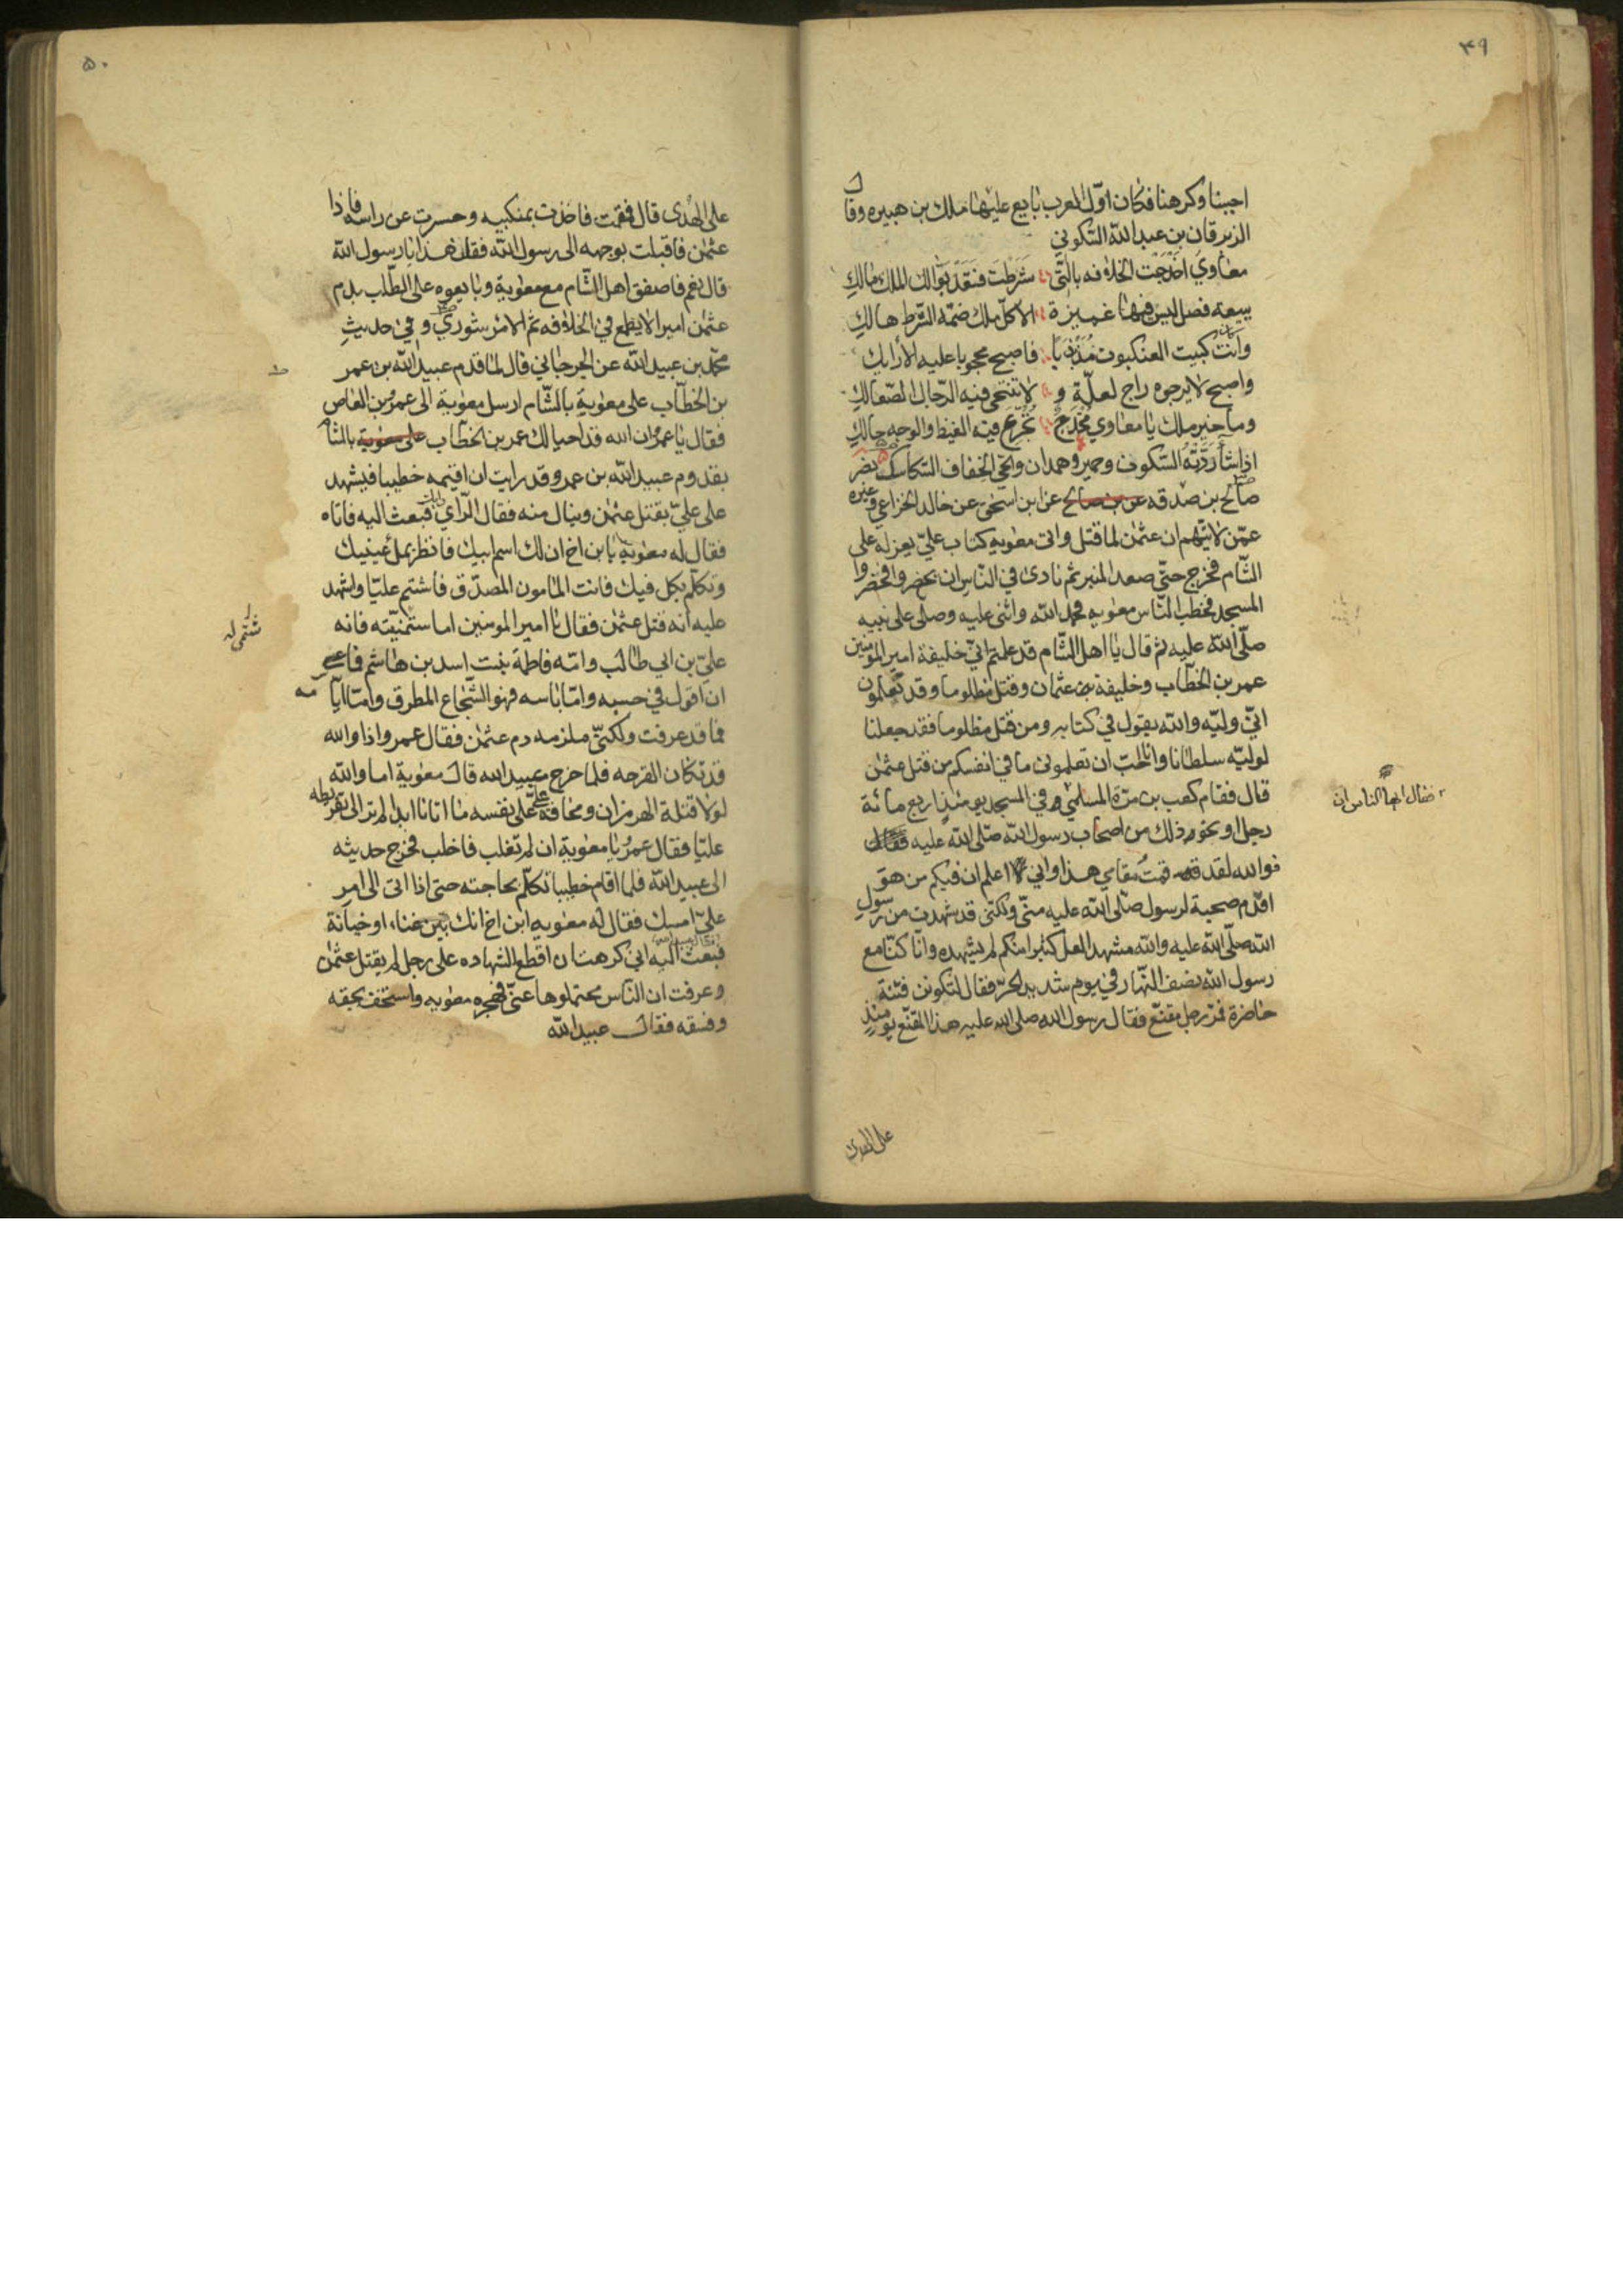 ۴۹
احببنا وكرهنا فكان اوّل العرب بايع عليها مالك بن هبيره وقال
الزبرقان بن عبد الله السّكوني
معاوي اخدجت الخلافه بالتي شرطت فقد بوّا لك الملك مالك
ببيعه فصل ليس فيها غميزة الا كل ملك ضمّه الشرط هالك
وكان كبيت العنكبوت مذبذبا فاصبح محجوبا عليه الأرايك
واصبح لا يرجوه راج لعلّة ولا تنتحي فيه الرّجال الصّعالك
وما خير ملك يا معاوي مخدج تجرّع فيه الغيظ والوجه حالك
اذا شاء ردّته السّكون وحمير وهمدان والحيّ الخفاف السّكاسك نصر
صالح بن صدقه عن بن صالح عن ابن اسحق عن خالد الخزاعي وغيره
عمّن لا يتّهم ان عثمن لما قتل واتى معويه كتاب عليّ بعزله على
الشّام فخرج حتّى صعد المنبر ثم نادى في النّاس ان يحضروا فحضروا
المسجد فخطب النّاس معويه فحمد الله واثنى عليه وصلى على نبيه
صلّى الله عليه ثم قال يا اهل الشّام قد علمتم انّي خليفة امير المومنين
عمر بن الخطّاب وخليفة عثمان وقتل مظلوما وقد تعلمون
انّي وليّه والله يقول في كتابه ومن قتل مظلوما فقد جعلنا
لوليّه سلطانا وانا احبّ ان تعلموني ما في انفسكم من قتل عثمن
قال فقام كعب بن مرّة السلمي وفي المسجد يومئذ اربع مائة
رجل او نحو ذلك من اصحاب رسول الله صلّى الله عليه فقال
فوالله لقد قمت مقامي هذا واني لا اعلم ان فيكم من هو
اقدم صحبة لرسول صلّى الله عليه منّي ولكني قد شهدت من رسول
الله صلّى الله عليه والله مشهدا لعل كثيرا منكم لم يشهده وانّا كنّا مع
رسول الله نصف النّهار في يوم شديد الحرّ فقال لتكونن فتنة
حاضرة فمرّ رجل مقنّع فقال رسول الله صلى الله عليه هذا المقنّع يومئذ
فقال ايها الناس ان
على الهدى
۵۰
على الهدى قال فقمت فاخذت بمنكبيه وحسرت عن راسه فاذا
عثمن فاقبلت بوجهه الى رسول الله فقلت هذا يا رسول الله
قال نعم فاصفق اهل الشّام مع معوية وبايعوه على الطّلب بدم
عثمن اميرا لا يطمع في الخلافه ثم الامر شورى وفي حديث
محمّد بن عبيد الله عن الجرجاني قال لما قدم عبيد الله بن عمر
بن الخطّاب على معوية بالشّام ارسل معوية الى عمرو بن العاص
فقال يا عمرو ان الله قد احيا لك عمر بن الخطاب على معوية بالشام
بقدوم عبيد الله بن عمر وقد رايت ان اقيمه خطيبا فيشهد
على عليّ بقتل عثمن وينال منه فقال الرّاي ما رايت فبعث اليه فاتاه
فقال له معوية يا بن اخ ان لك اسم ابيك فانظر بملء عينيك
وتكلّم بكل فيك فانت المامون المصدّق فاشتم عليّا واشهد
عليه انه قتل عثمن فقال يا امير المومنين اما شتميته فانه
عليّ بن ابي طالب وامّه فاطمة بنت اسد بن هاشم فما عسى
ان اقول في حسبه وامّا باسه فهو الشّجاع المطرق وامّا ايّامه
فما قد عرفت ولكنّي ملزمه دم عثمن فقال عمرو اذا والله
قد نكات القرحه فلما خرج عبيد الله قال معوية اما والله
لولا قتلة الهرمزان ومخافة عليّ على نفسه ما اتانا ابدا لم تر الى تقريظه
عليّا فقال عمرو يا معوية ان لم تغلب فاخلب فخرج حديثه
الى عبيد الله فلما اقام خطيبا تكلّم بحاجته حتى اذا اتى الى امر
عليّ امسك فقال له معويه ابن اخ انك بين عناء او خيانة
فبعث اليه اني كرهت ان اقطع الشهاده على رجل لم يقتل عثمن
وعرفت ان النّاس محتملوها عنّي فهجره معويه واستخف بحقه
وفسقه فقال عبيد الله
شتمي له